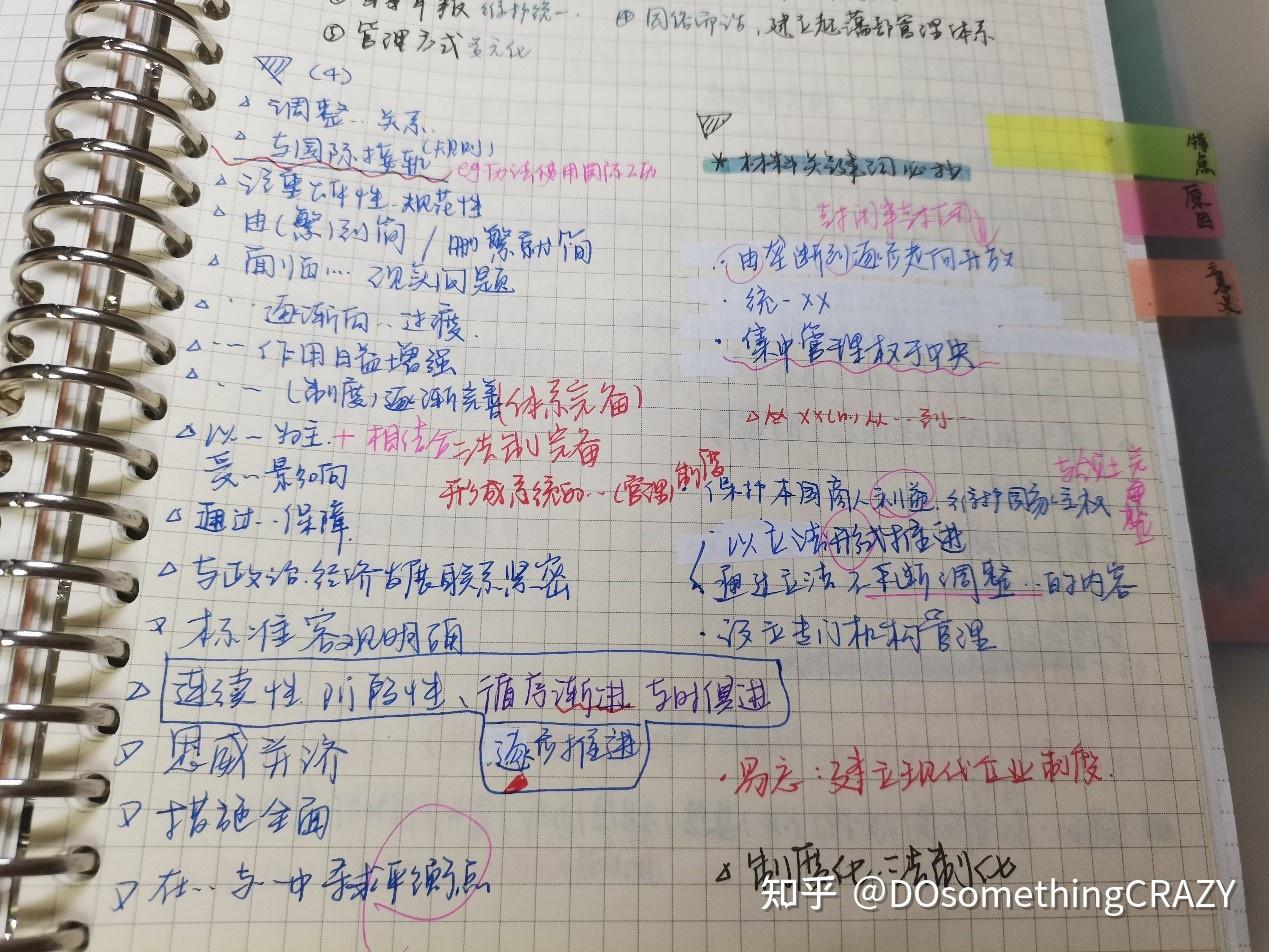 维护统一. ④ 因俗而治,建立起藩部管理体系
⑤ 管理方式多元化
(4)
△ 调整… 关系.
△ 与国际接轨(规则)
eg 历法使用国际公历
△ 注重整体性. 规范性
△ 由(繁)到简 / 删繁就简
△ 面临… 现实问题
△ … 逐渐向… 过渡.
△ … 作用日益增强
△ … (制度)逐渐完善(体系完备)
△ 以…为主 + 相结合 法制完备
受…影响
形成系统的…(管理)制度
△ 通过… 保障.
△ 与政治.经济发展联系紧密
标准客观明确
△ 连续性 阶段性、循序渐进 与时俱进
逐步推进
恩威并济
措施全面
在… 与…中寻求平衡点
* 材料关键词必抄
· 由垄断到逐步走向开放
· 统一XX
· 集中管理权于中央
△ 从XX(n)从…到…
· 保护本国商人利益. 维护国家主权
与领土完整
· 以立法形式推进
通过立法不断调整…的内容
· 设立专门机构管理
· 易忘:建立现代企业制度.
△ 制度化 法制化
特点
原因
意义
知乎 @DOsomethingCRAZY